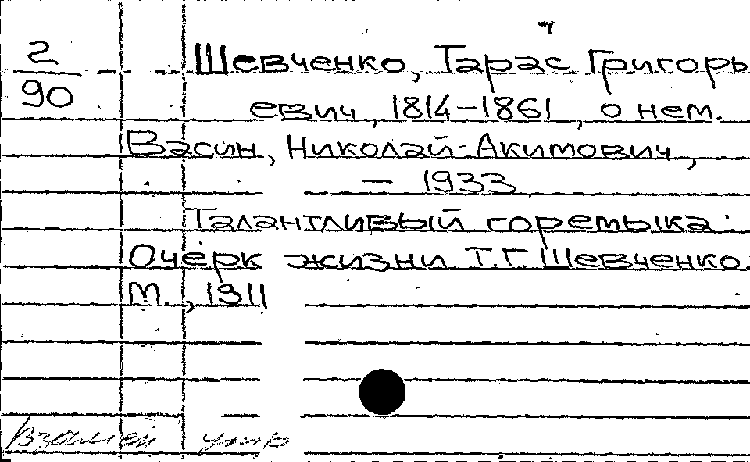 2
90
Шевченко, Тарас Григорь
евич, 1814-1861, о нем.
Васин, Николай Акимович,
- 1933
Талантливый горемыка.
Очерк жизни Т.Г. Шевченко.
М., 1911
взамен утр